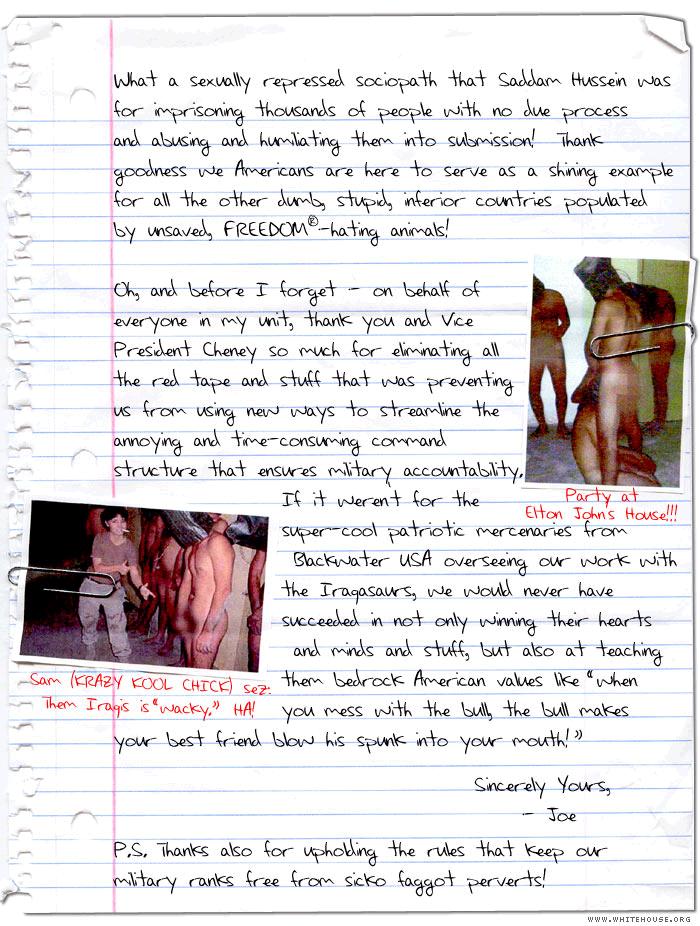 What a sexually repressed sociopath that Saddam Hussein was
for imprisoning thousands of people with no due process
and abusing and humiliating them into submission! Thank
goodness we Americans are here to serve as a shining example
for all the other dumb, stupid, inferior countries populated
by unsaved, FREEDOM®-hating animals!
Oh, and before I forget - on behalf of
everyone in my unit, thank you and Vice
President Cheney so much for eliminating all
the red tape and stuff that was preventing
us from using new ways to streamline the
annoying and time-consuming command
structure that ensures military accountability.
Party at
Elton John's House!!!
If it werent for the
super-cool patriotic mercenaries from
Blackwater USA overseeing our work with
the Iraqasaurs, we would never have
succeeded in not only winning their hearts
and minds and stuff, but also at teaching
them bedrock American values like "when
you mess with the bull, the bull makes
your best friend blow his spunk into your mouth!"
Sam (KRAZY KOOL CHICK) sez:
Them Iraqis is "wacky." HA!
Sincerely Yours,
- Joe
P.S. Thanks also for upholding the rules that keep our
military ranks free from sicko faggot perverts!
WWW.WHITEHOUSE.ORG